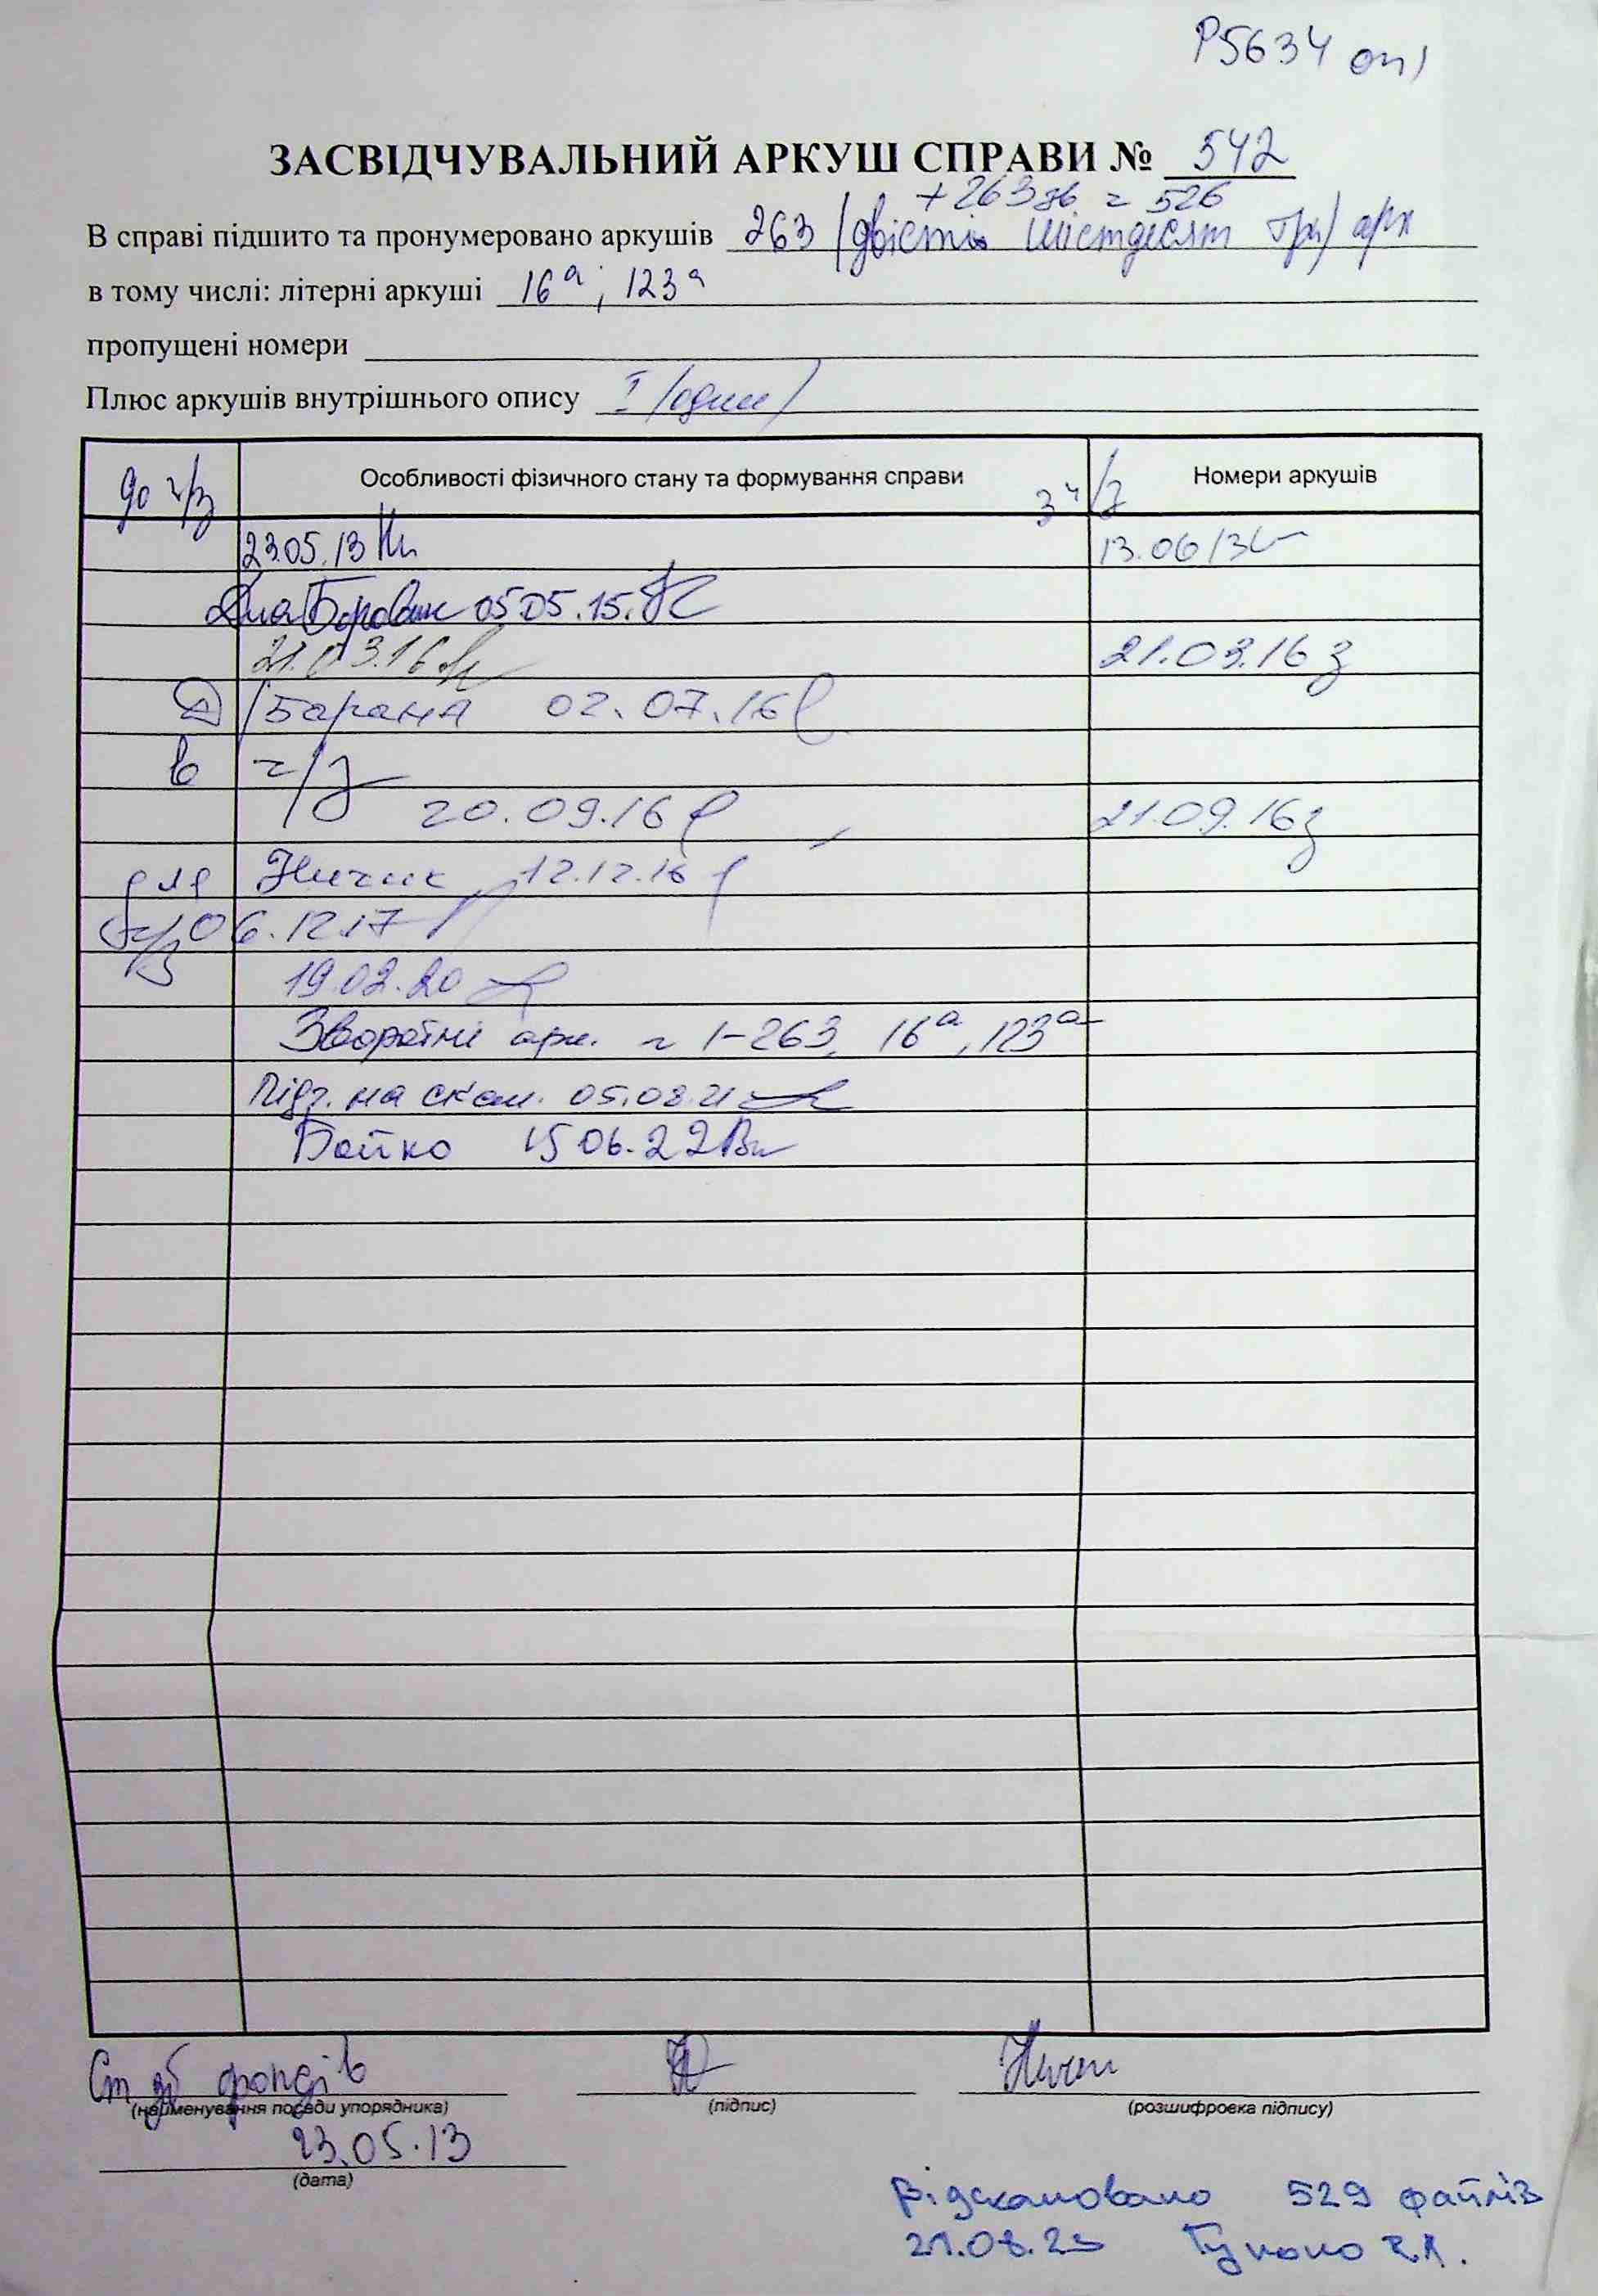 Р5634 оп1
ЗАСВІДЧУВАЛЬНИЙ АРКУШ СПРАВИ № 542
+ 263 зв = 526
В справі підшито та пронумеровано аркушів 263 /двісті шістдесят три/ арк
в тому числі: літерні аркуші 16а; 123а
пропущені номери
Плюс аркушів внутрішнього опису I /один/
до ч/з Особливості фізичного стану та формування справи з ч/з Номери аркушів
23.05.13 13.06.13
Для 05.05.15.
21.03.16 21.03.16 з
Д/Барана 02.07.16
в ч/з
20.09.16 21.09.16 з
для Ничик 12.12.16
ч/з 06.12.17
19.02.20
Зворотні арк. 1-263, 16а, 123а
Підг. на скан. 05.08.21
Бойко 15 06.22
Ст зб фондів
(найменування посади упорядника) (підпис) (розшифровка підпису)
23.05.13
(дата)
Відскановано 529 файлів
21.08.23